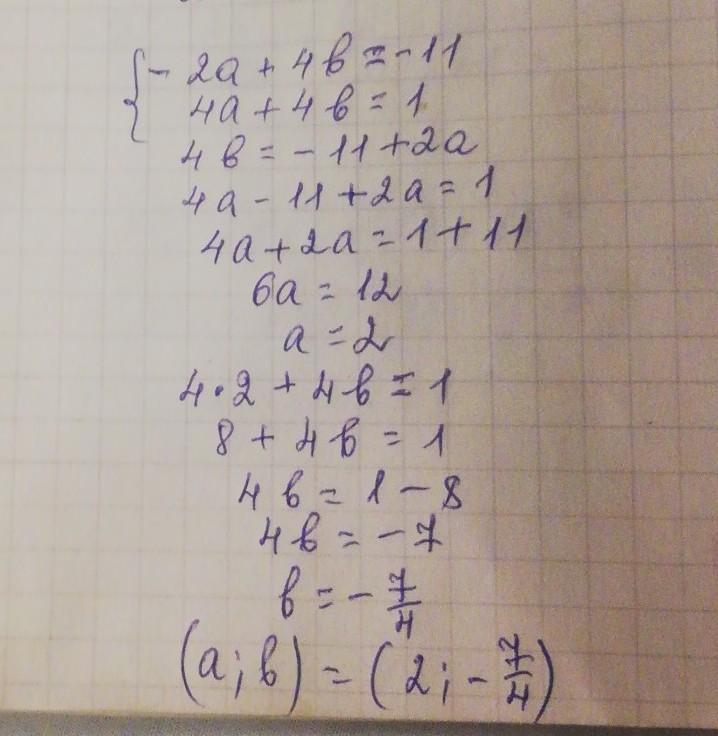 { - 2a + 4b = -11
4a + 4b = 1
4b = - 11 + 2a
4a - 11 + 2a = 1
4a + 2a = 1 + 11
6a = 12
a = 2
4 · 2 + 4b = 1
8 + 4b = 1
4b = 1 - 8
4b = - 7
b = - 7/4
(a; b) = (2; - 7/4)